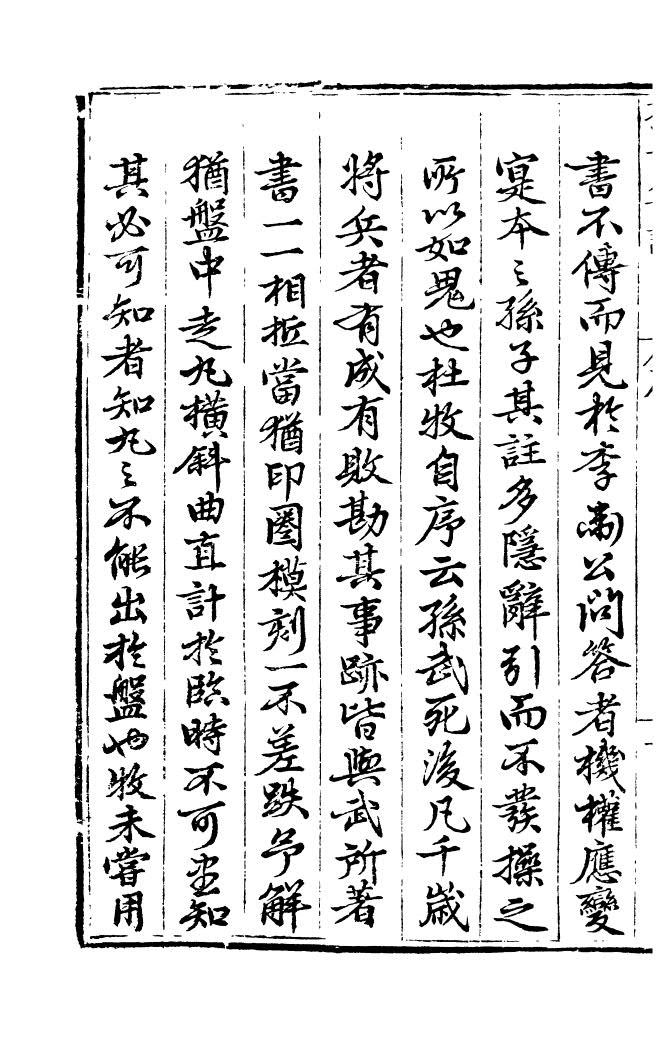 書不傳而見於李衛公問答者機權應變
寔本之孫子其註多隱辭引而不發操之
所以如鬼也杜牧自序云孫武死後凡千歲
將兵者有成有敗勘其事跡皆與武所著
書一一相抵當猶印圈模刻一不差跌予解
猶盤中走丸橫斜曲直計於臨時不可盡知
其必可知者知丸之不能出於盤也牧未嘗用